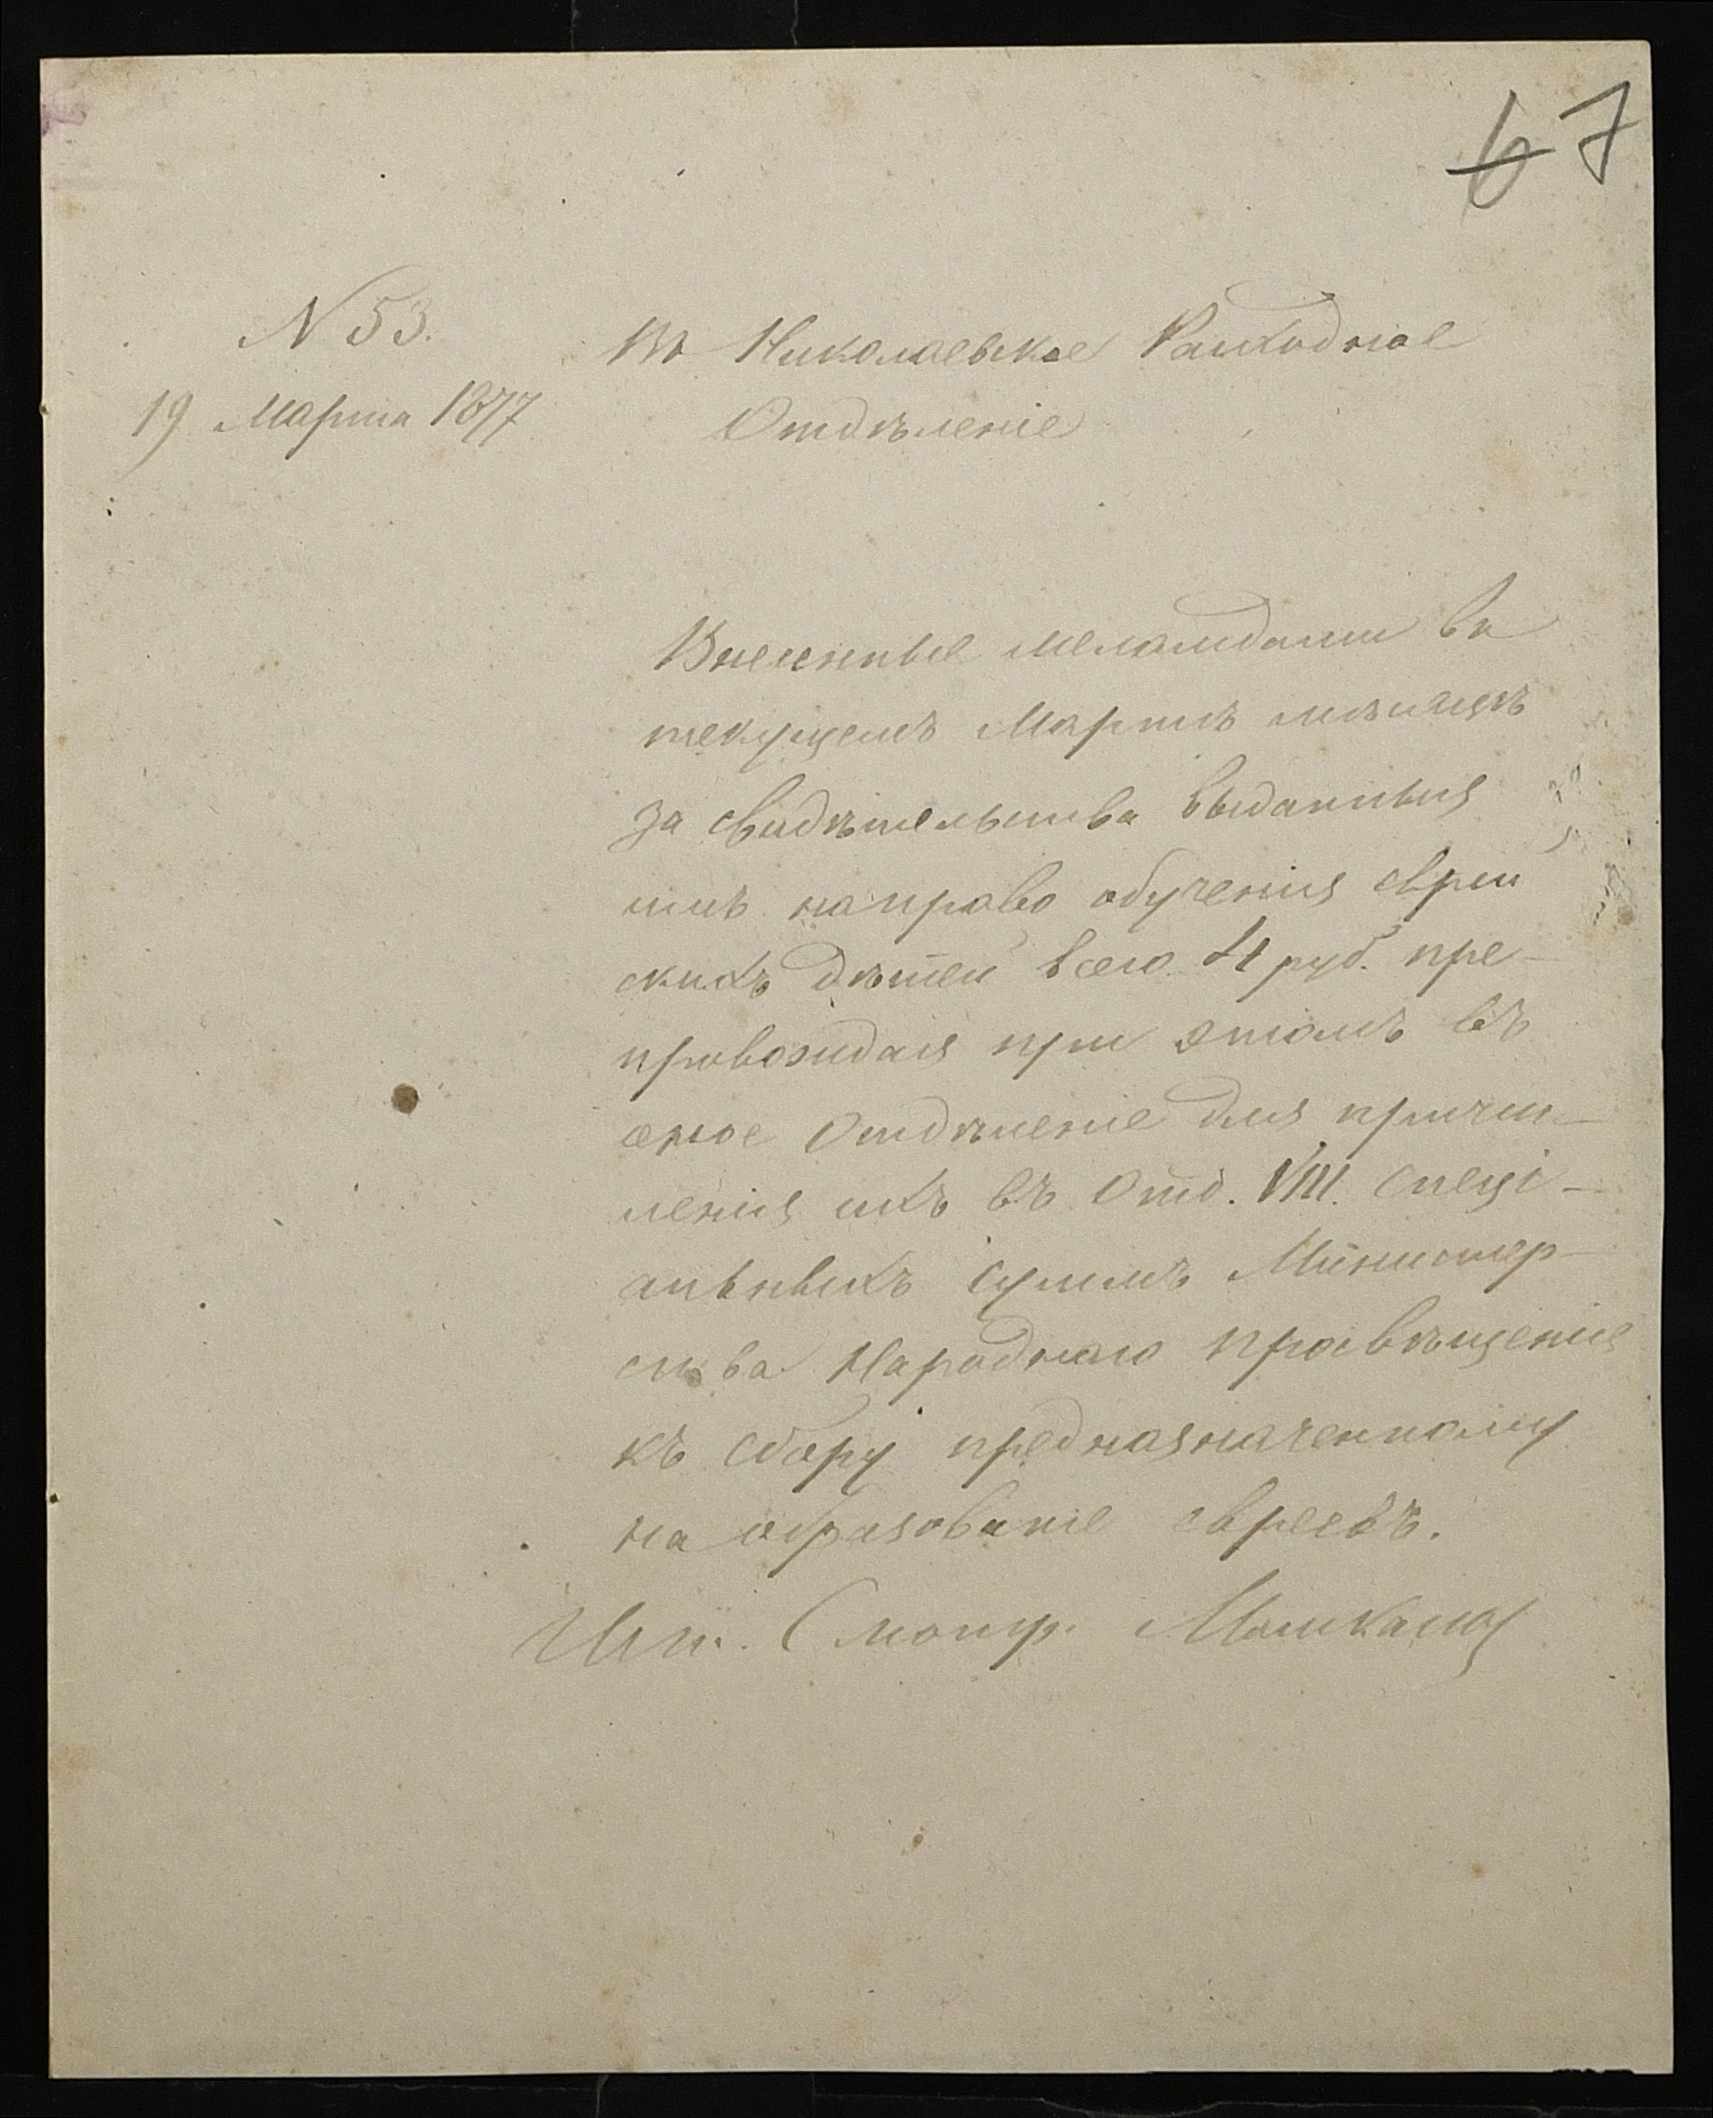 67
N 53.
19 Марта 1877
Въ Николаевское Расходное
Отдѣленіе
Внесенные меламдами въ
текущемъ Мартѣ мѣсяцѣ
за свидѣтельства выданныя
имъ на право обученія еврей
скихъ дѣтей всего 4 руб. пре-
провождая при этомъ въ
оное Отдѣленіе для причи-
ленія ихъ въ Отд. VIII. спеці-
альныхъ суммъ Министер-
ства Народнаго просвѣщенія
къ сбору предназначенному
на образованіе евреевъ.
Шт. Смотр.